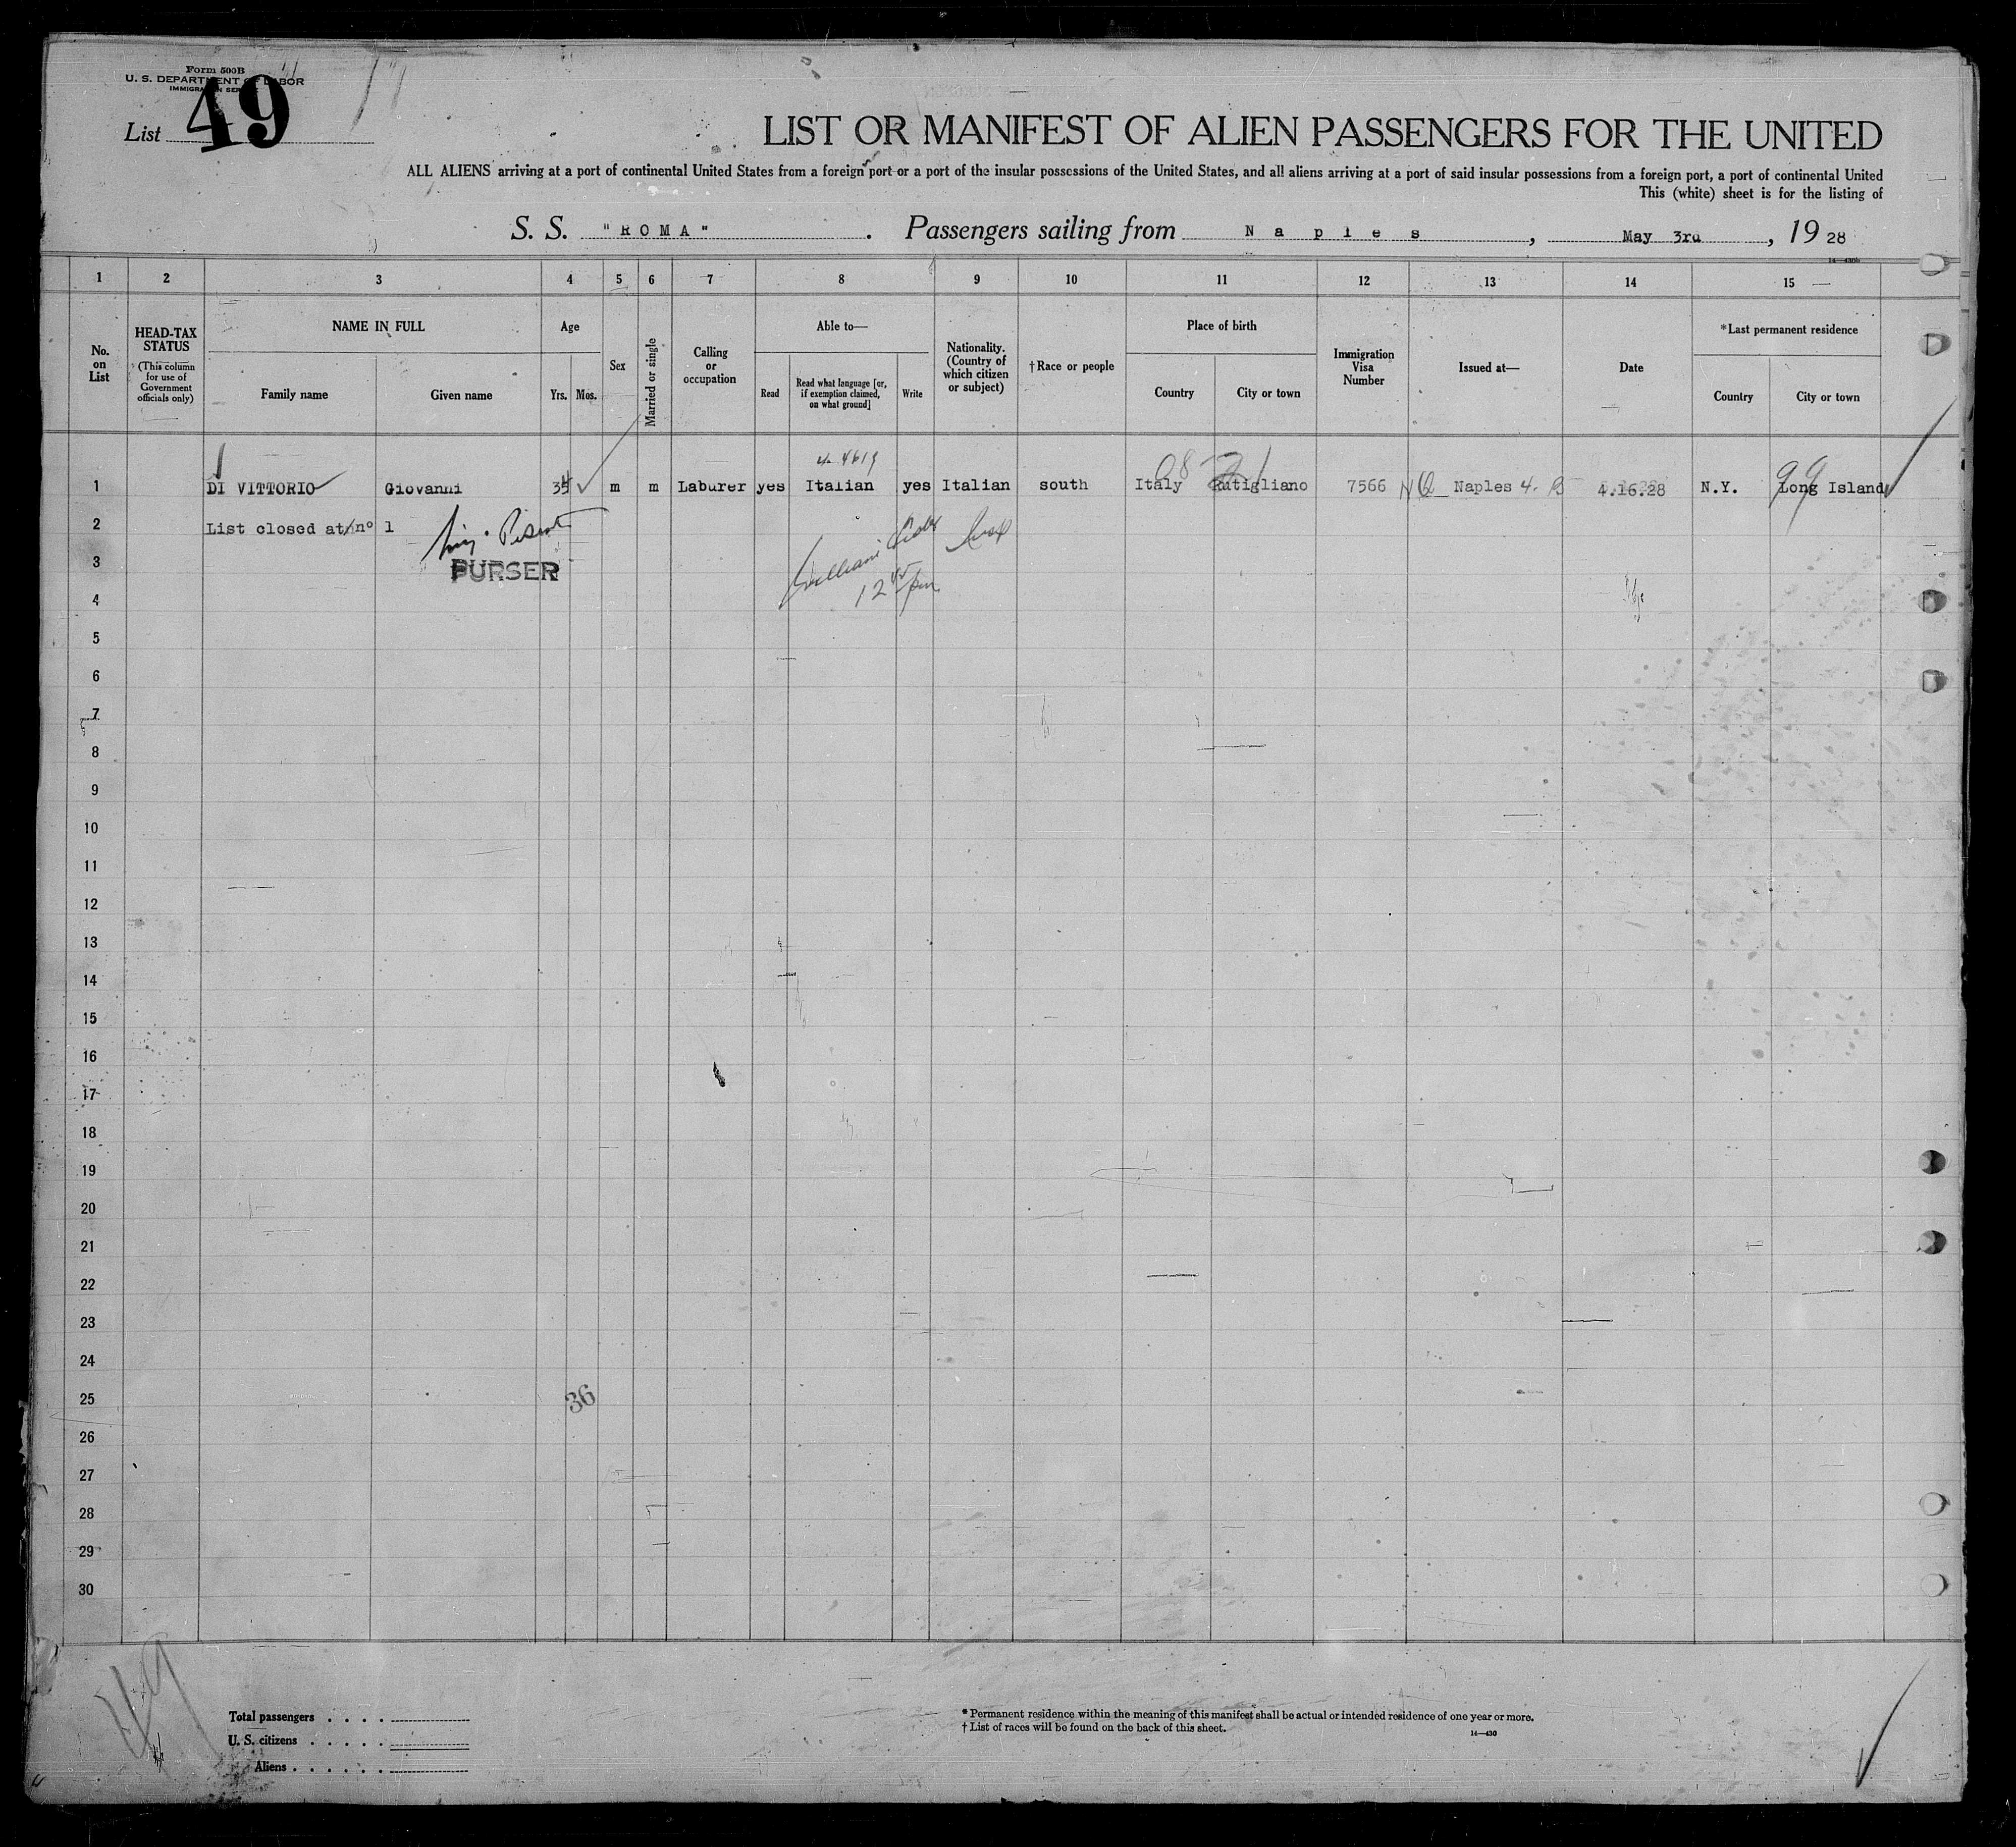 Form 500B
U. S. DEPARTMENT OF LABOR
IMMIGRATION SERVICE
List 49
LIST OR MANIFEST OF ALIEN PASSENGERS FOR THE UNITED
ALL ALIENS arriving at a port of continental United States from a foreign port or a port of the insular possessions of the United States, and all aliens arriving at a port of said insular possessions from a foreign port, a port of continental United
This (white) sheet is for the listing of
S. S. "ROMA". Passengers sailing from Naples, May 3rd, 19 28
14—430b
1 2 3 4 5 6 7 8 9 10 11 12 13 14 15
No. on List
HEAD-TAX STATUS
(This column for use of Government officials only)
NAME IN FULL
Family name Given name
Age
Yrs. Mos.
Sex
Married or single
Calling or occupation
Able to—
Read
Read what language [or, if exemption claimed, on what ground]
Write
Nationality. (Country of which citizen or subject)
†Race or people
Place of birth
Country City or town
Immigration Visa Number
Issued at—
Date
*Last permanent residence
Country City or town
4619
1 DI VITTORIO Giovanni 34 m m Laburer yes Italian yes Italian south Italy Rutigliano 7566 Naples 4.16.28 N.Y. Long Island
99
2 List closed at nº 1
PURSER
12 45 pm
3
4
5
6
7
8
9
10
11
12
13
14
15
16
17
18
19
20
21
22
23
24
25
36
26
27
28
29
30
49
Total passengers . . . .
U. S. citizens . . . . .
Aliens . . . . . .
* Permanent residence within the meaning of this manifest shall be actual or intended residence of one year or more.
† List of races will be found on the back of this sheet.
14—430